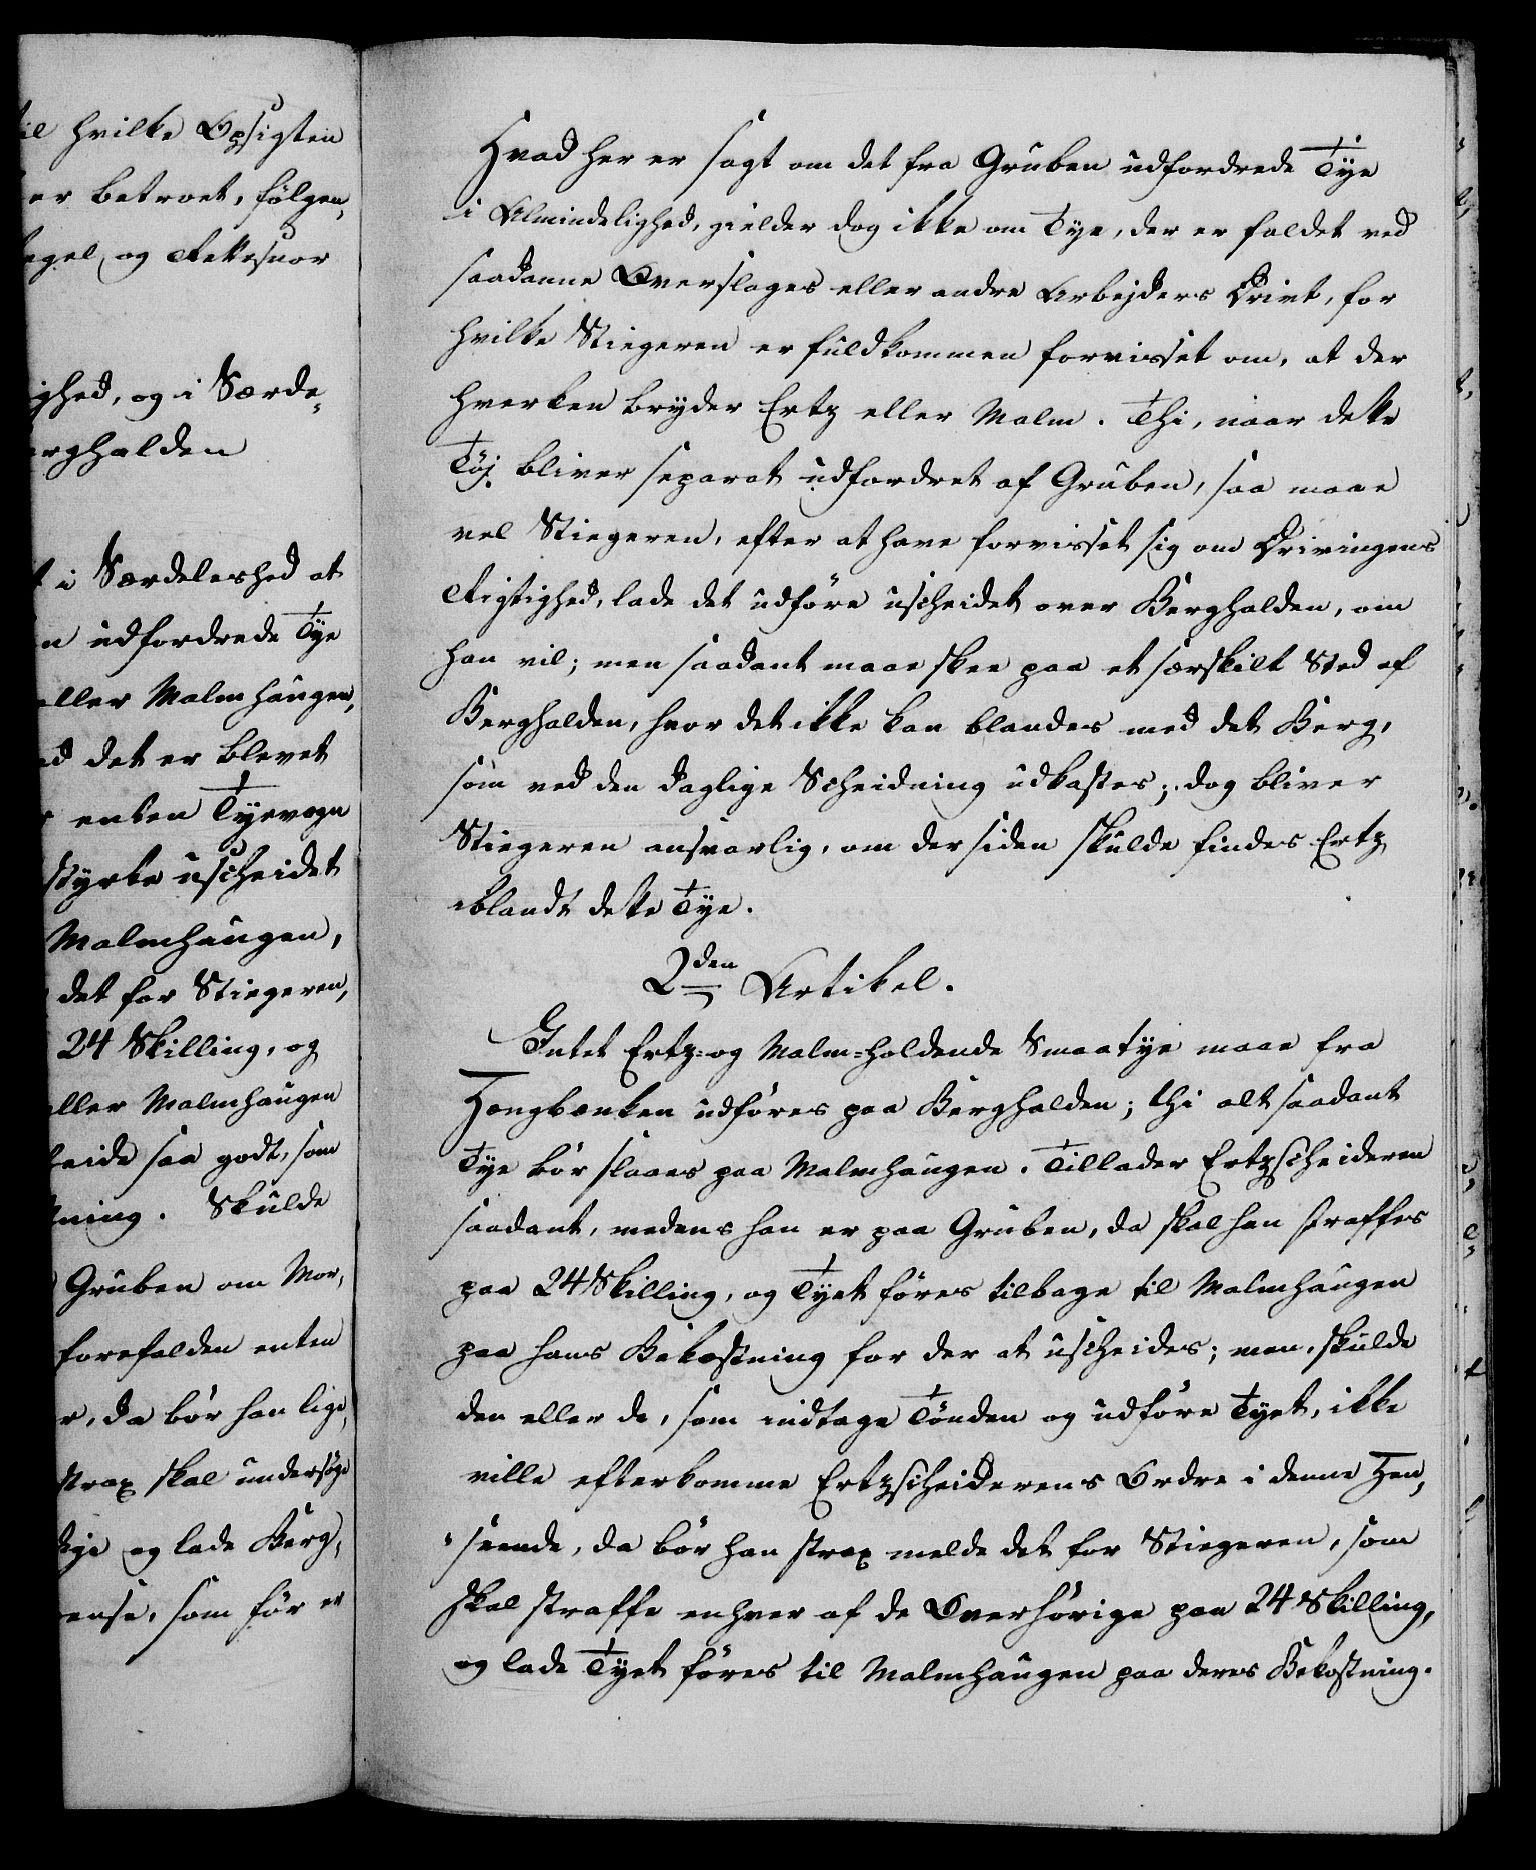 til hvilke Opsigten
er betroet, følgen,
egel, og Rettesnor
ighed, og i Særde,
erghalden
t i Særdeleshed at
n udfordrede Tye
eller Malmhaugen,
ed det er blevet
enten Tyevogn
styrke uscheidet
Malmhaugen,
det for Stiegeren,
24 Skilling, og
eller Malmhaugen
heide saa godt, som
ning. Skulde
Gruben om Mor,
forefalden enten
r, da bør han lige,
strax skal undersøge
Tye og lade Berg,
ense, som før er
Hvad her er sagt om det fra Gruben udfordrede Tye
i Almindelighed, gielder dog ikke om Tye, der er faldet ved
saadanne Overslages eller andre Arbejders Drivt, for
hvilke Stiegeren er fuldkommen forvisset om, at der
hverken bryder Ertz eller Malm. Thi, naar dette
Töj bliver separat udfordret af Gruben, saa maae
vel Stiegeren, efter at have forvisset sig om Drivingens
Rigtighed, lade det udföre uscheidet over Berghalden, om
han vil; men saadant maae skee paa et særskilt Sted af
Berghalden, hvor det ikke kan blandes med det Berg,
som ved den daglige Scheidning udkastes; dog bliver
Stiegeren ansvarlig, om der siden skulde findes Ertz
iblandt dette Tye.
2den Artikel.
Intet Ertz- og Malm-holdende Smaatye maae fra
Hengbænken udføres paa Berghalden; thi alt saadant
Tye bör slaaes paa Malmhaugen. Tillader Ertzscheideren
saadant, medens han er paa Gruben, da skal han straffes
paa 24 Skilling, og Tyet föres tilbage til Malmhaugen
paa hans Bekostning for der at uscheides; men, skulde
den eller de, som indtage Tönden og udföre Tyet, ikke
ville efterkomme Ertzscheiderens Ordre i denne Hen,
seende, da bör han strax melde det for Stiegeren, som
skal straffe enhver af de Overhörige paa 24 Skilling,
og lade Tyet föres til Malmhaugen paa deres Bekostning.